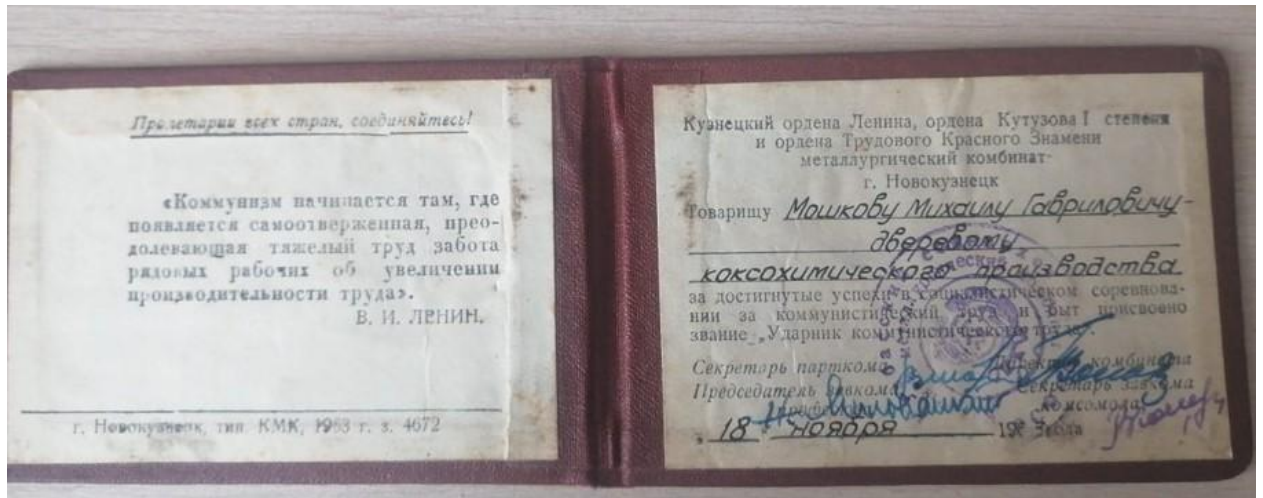 Пролетарии всех стран, соединяйтесь!
«Коммунизм начинается там, где
появляется самоотверженная, прео-
долевающая тяжелый труд забота
рядовых рабочих об увеличении
производительности труда».
В. И. ЛЕНИН.
г. Новокузнецк, тип. КМК, 1963 г. з. 4672
Кузнецкий ордена Ленина, ордена Кутузова I степени
и ордена Трудового Красного Знамени
металлургический комбинат
г. Новокузнецк
Товарищу Мошкову Михаилу Гавриловичу -
дверевому
коксохимического производства
за достигнутые успехи в социалистическом соревнова-
нии за коммунистический труд и быт присвоено
звание „Ударник коммунистического труда".
Секретарь парткома Директор комбината
Председатель завкома Секретарь завкома
комсомола
„18 ноября 196 года